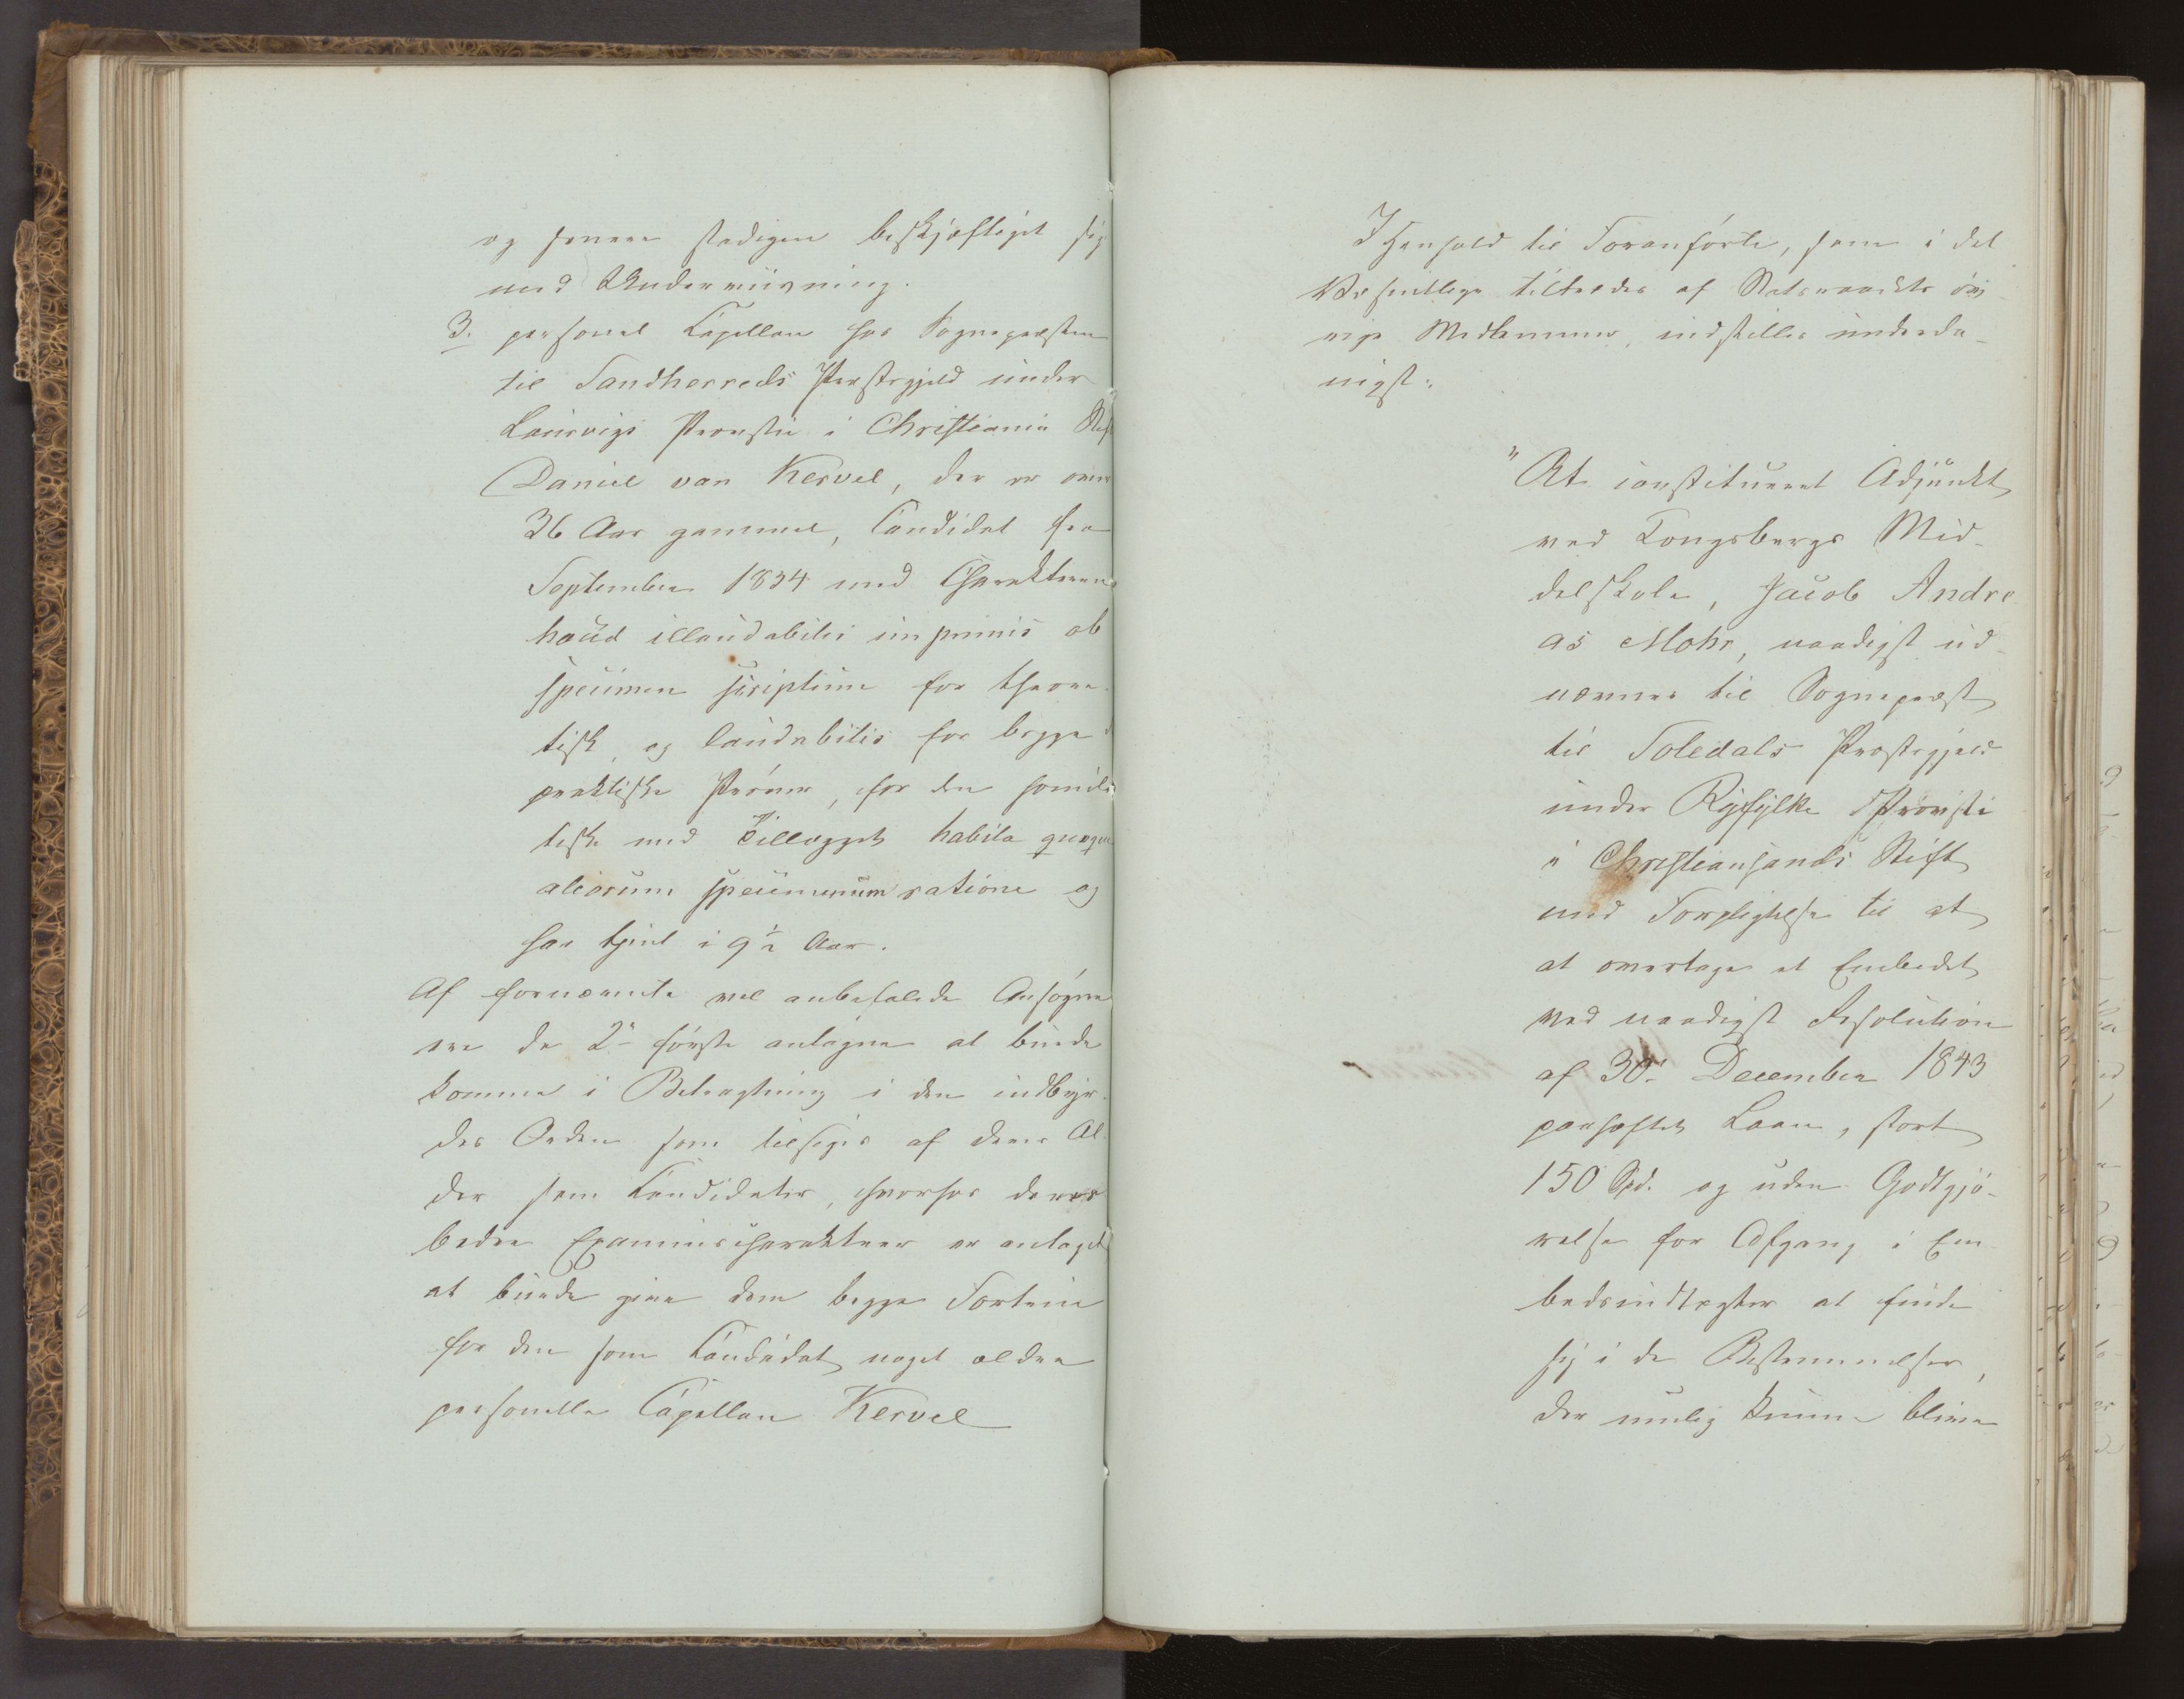 og senere stadigen beskjæftiget sig
med Underviisning.
3. personel Capellan hos Sognepræsten
til Sandherreds Præstegjeld under
Laurvigs Provstie i Christiania Stift
Daniel van Kervel, der er over
36 Aar gammel, Candidat fra
September 1834 med Charakteren
haud illaudabilis imprimis ob
specimen scriptum for theore-
tisk, og laudabilis for begge
praktiske Prøver, for den homile
tiske med Tillægget habita quoque
aliorum speciminum ratione og
har tjent i 9½ Aar.
Af fornævnte vel anbefalede Ansøgere
ere de 2de første antagne at burde
komme i Betragtning i den indbyr-
des Orden som tilsiges af deres Al-
der som Candidater, hvorhos deres
bedre Examenscharakterer er antaget
at burde give dem begge Fortrin
for den som Candidat noget ældre
personelle Capellan Kervel
I Henhold til Foranførte, som i det
Væsentlige tiltrædes af Statsraadets øv-
rige Medlemmer, indstilles underda-
nigst:
"At constitueret Adjunkt
ved Kongsbergs Mid-
delskole, Jacob Andre
as Mohr, naadigst ud-
nævnes til Sognepræst
til Soledals Præstegjeld
under Ryfylke Provsti
i Christiansands Stift
med Forpligtelse til at
at overtage et Embedet
ved naadigst Resolution
af 30. December 1843
paaheftet Laan, stort
150 Spd. og uden Godtgjø-
relse for Afgang i Em-
bedsindtægter at finde
sig i de Bestemmelser,
der mulig kunne blive